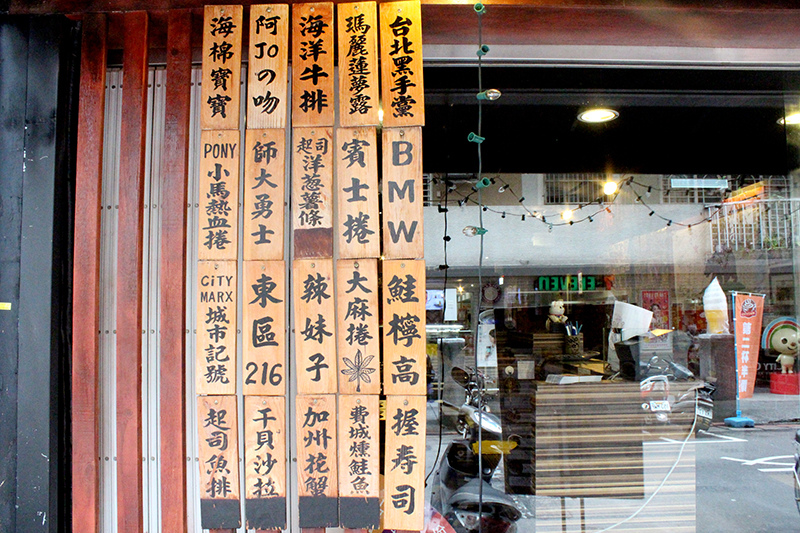 台北黑手黨
瑪麗蓮夢露
海洋牛排
阿JOの吻
海棉寶寶
BMW
賓士捲
起司洋葱薯條
師大勇士
PONY
小馬熱血捲
鮭檸高
大麻捲
辣妹子
東區
216
CiTY
MARX
城市記號
握壽司
費城燻鮭魚
加州花蟹
干貝沙拉
起司魚排
ELEVEN